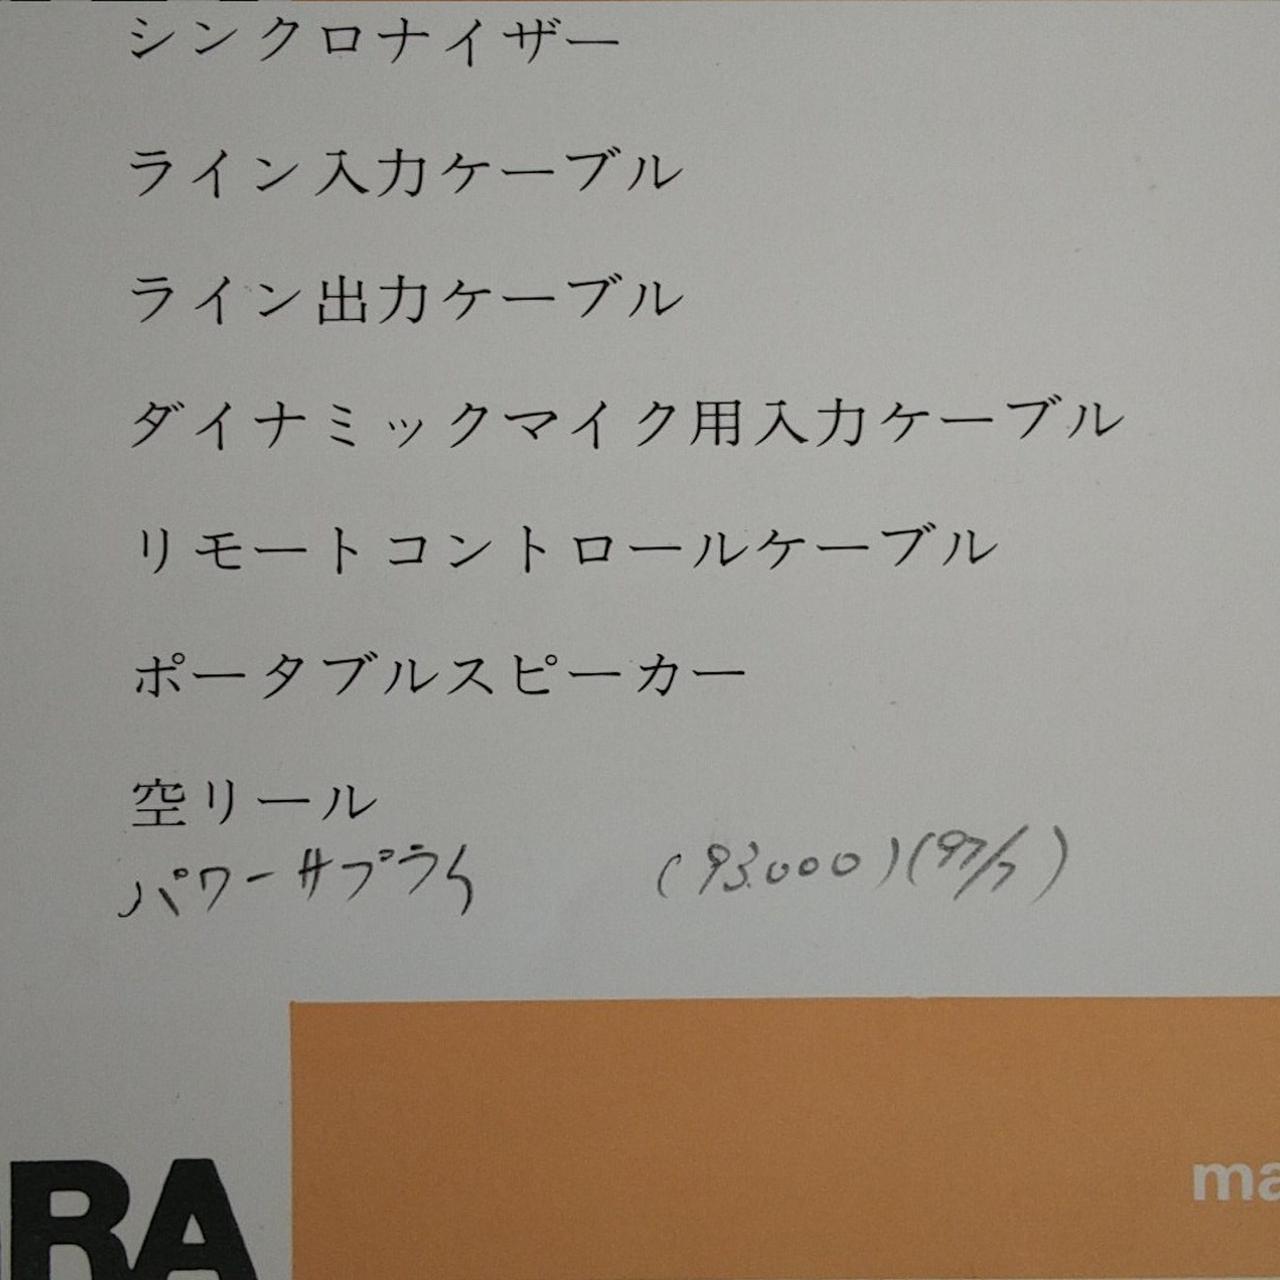 シンクロナイザー
ライン入力ケーブル
ライン出力ケーブル
ダイナミックマイク用入力ケーブル
リモートコントロールケーブル
ポータブルスピーカー
空リール
パワーサプライ (93.000)(97/7)
RA
ma